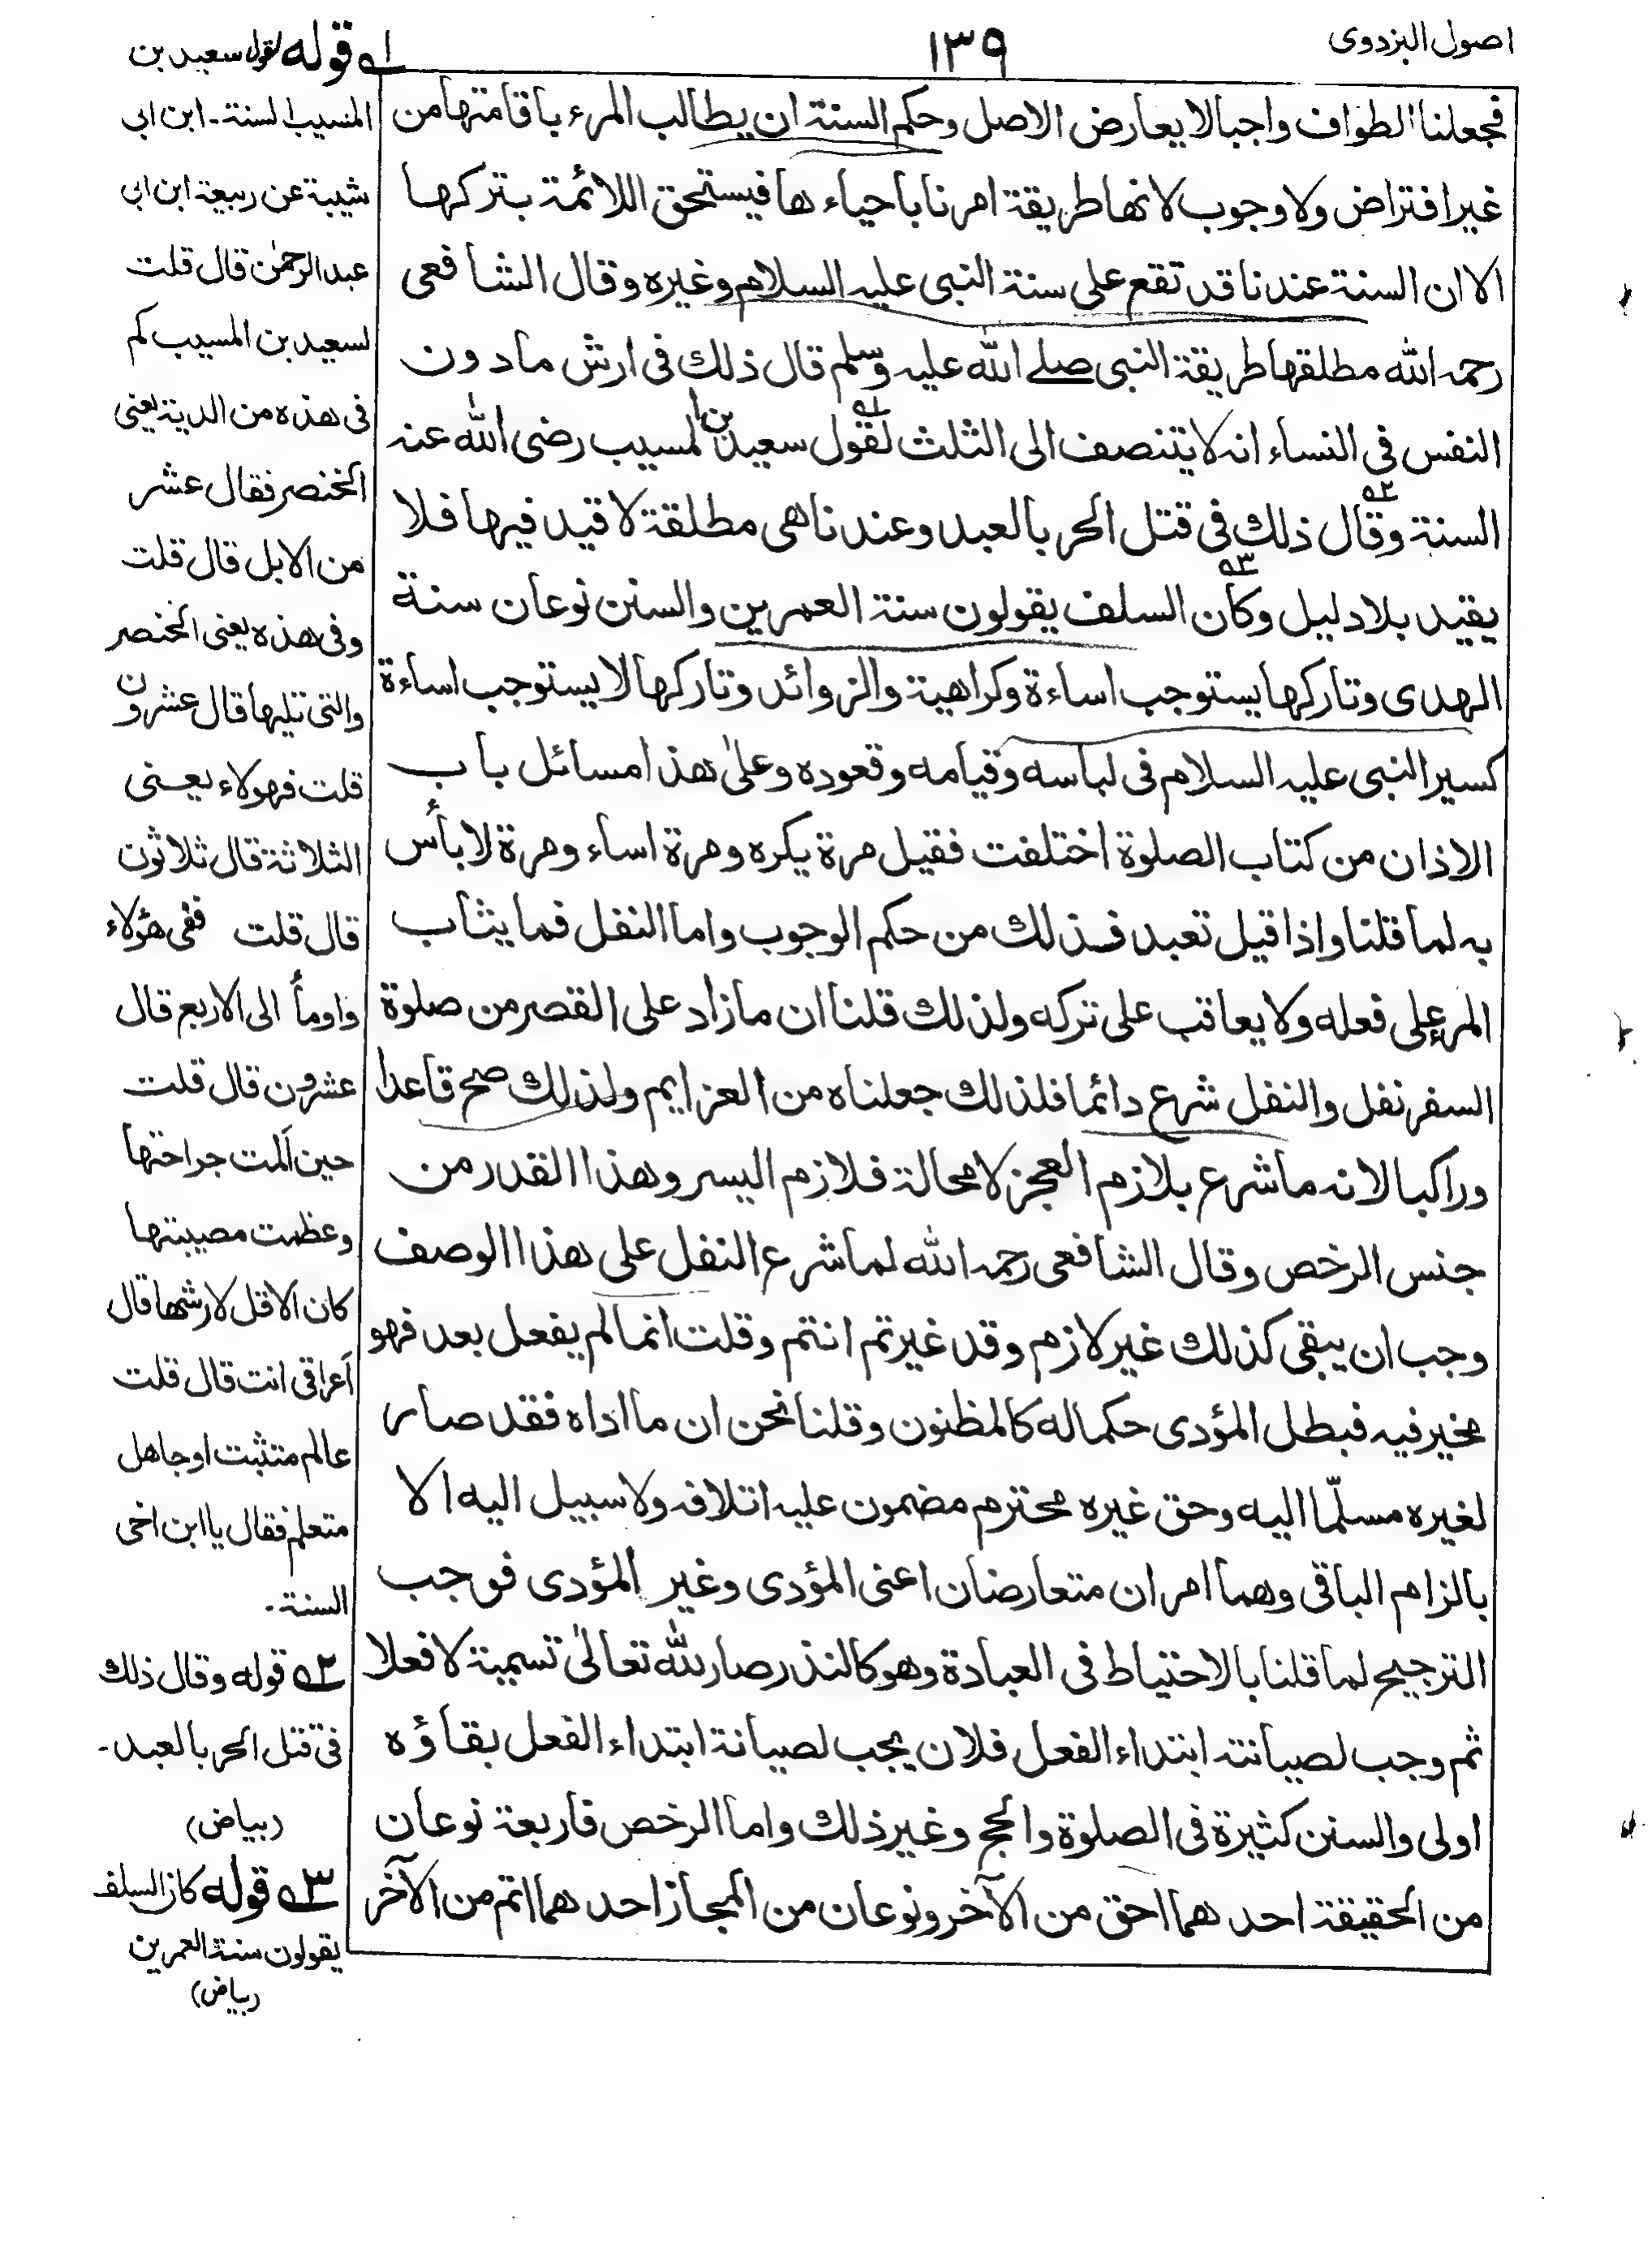 اصول البزدوى
١٣٩
فجعلنا الطواف واجبالا يعارض الاصل وحكم السنة ان يطالب المرء باقامتها من
غير افتراض ولا وجوب لانها طريقة امرنا باحياء ها فيستحق اللائمة بتركها
الا ان السنة عندنا قد تقع على سنة النبى عليه السلام وغيره وقال الشافعى
رحمه الله مطلقها طريقة النبى صلے الله عليه وسلم قال ذلك فى ارش مادون
النفس فى النساء انه لا يتنصف الى الثلث لقول ١ه سعيد بن المسيب رضى الله عنه
السنة وقال ٢ه ذلك فى قتل الحر بالعبد وعندنا هى مطلقة لا قيد فيها فلا
يقيد بلا دليل وكان ٣ه السلف يقولون سنة العمرين والسنن نوعان سنة
الهدى وتاركها يستوجب اساءة وكراهية والزوائد وتاركها لا يستوجب اساءة
كسير النبى عليه السلام فى لباسه وقيامه وقعوده وعلى هذا مسائل باب
الاذان من كتاب الصلوة اختلفت فقيل مرة يكره ومرة اساء ومرة لا بأس
به لما قلنا واذا قيل تعبد فذلك من حكم الوجوب واما النفل فما يثاب
المرء على فعله ولا يعاقب على تركه ولذلك قلنا ان ما زاد على القصر من صلوة
السفر نفل والنفل شرع دائما فلذلك جعلناه من العزايم ولذلك صح قاعدا
وراكبا لانه ما شرع بلازم العجز لا محالة فلازم اليسر وهذا القدر من
جنس الرخص وقال الشافعى رحمه الله لما شرع النفل على هذا الوصف
وجب ان يبقى كذلك غير لازم وقد غيرتم انتم وقلت انما لم يفعل بعد فهو
مخير فيه فبطل المؤدى حكما له كالمظنون وقلنا نحن ان ما اداه فقد صار
لغيره مسلّما اليه وحق غيره محترم مضمون عليه اتلافه ولا سبيل اليه الا
بالزام الباقى وهما امران متعارضان اعنى المؤدى وغير المؤدى فوجب
الترجيح لما قلنا بالاحتياط فى العبادة وهو كالنذر صار لله تعالى تسمية لا فعلا
ثم وجب لصيانته ابتداء الفعل فلان يجب لصيانة ابتداء الفعل بقاؤه
اولى والسنن كثيرة فى الصلوة والحج وغير ذلك واما الرخص فاربعة نوعان
من الحقيقة احدهما احق من الآخر ونوعان من المجاز احدهما اتم من الآخر
١ه قوله لقول سعيد بن
المسيب السنة۔ ابن ابى
شيبة عن ربيعة ابن ابى
عبد الرحمن قال قلت
لسعيد بن المسيب كم
فى هذه من الدية يعنى
الخنصر فقال عشر
من الابل قال قلت
وفى هذه يعنى الخنصر
والتى تليها قال عشرون
قلت فهولاء يعنى
الثلاثة قال ثلاثون
قال قلت ففى هؤلاء
واومأ الى الاربع قال
عشرون قال قلت
حين آلمت جراحتها
وعظمت مصيبتها
كان الاقل لارشها قال
أعراقى انت قال قلت
عالم متثبت او جاهل
متعلم فقال يا ابن اخى
السنة۔
٢ه قوله وقال ذلك
فى قتل الحر بالعبد۔
(بياض)
٣ه قوله كان السلف
يقولون سنة العمرين
(بياض)